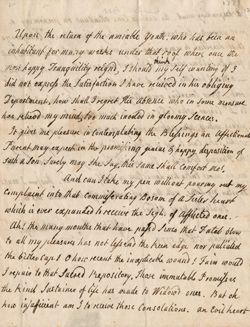 Upon the return of the amiable Youth, who has been an
inhabitant for many weeks under that roof where once the
most happy Tranquility reign'd, I should think my self wanting if I
did not express the Satisfaction I have received in his obliging
Deportment, how shall I regret His absence who in some measure
has relieved my mind, too much inured in gloomy Scenes.
To give me pleasure in contemplating the Blessings an Affectionate
Parent may expect in the promising genius & happy disposition of
such a Son. Surely may she Say, this same shall comfort me.
And can I take my pen without pouring out my
Complaint into that Commiserating Bosom of a Sister honor'd
which is ever expanded to receive the Sighs of Afflicted ones.
Ah! the many months that have past since that fatal blow
to all my pleasures has not lessened the keen edge nor palliated
the bitter cup I chew recent the inexplicable wound! I fain would
repair to that Sacred Repository, those immutable Promises
the Kind Sustainer of life has made to Widow'd ones. But oh
how insufficient am I to receive those Consolations. an Evil heart